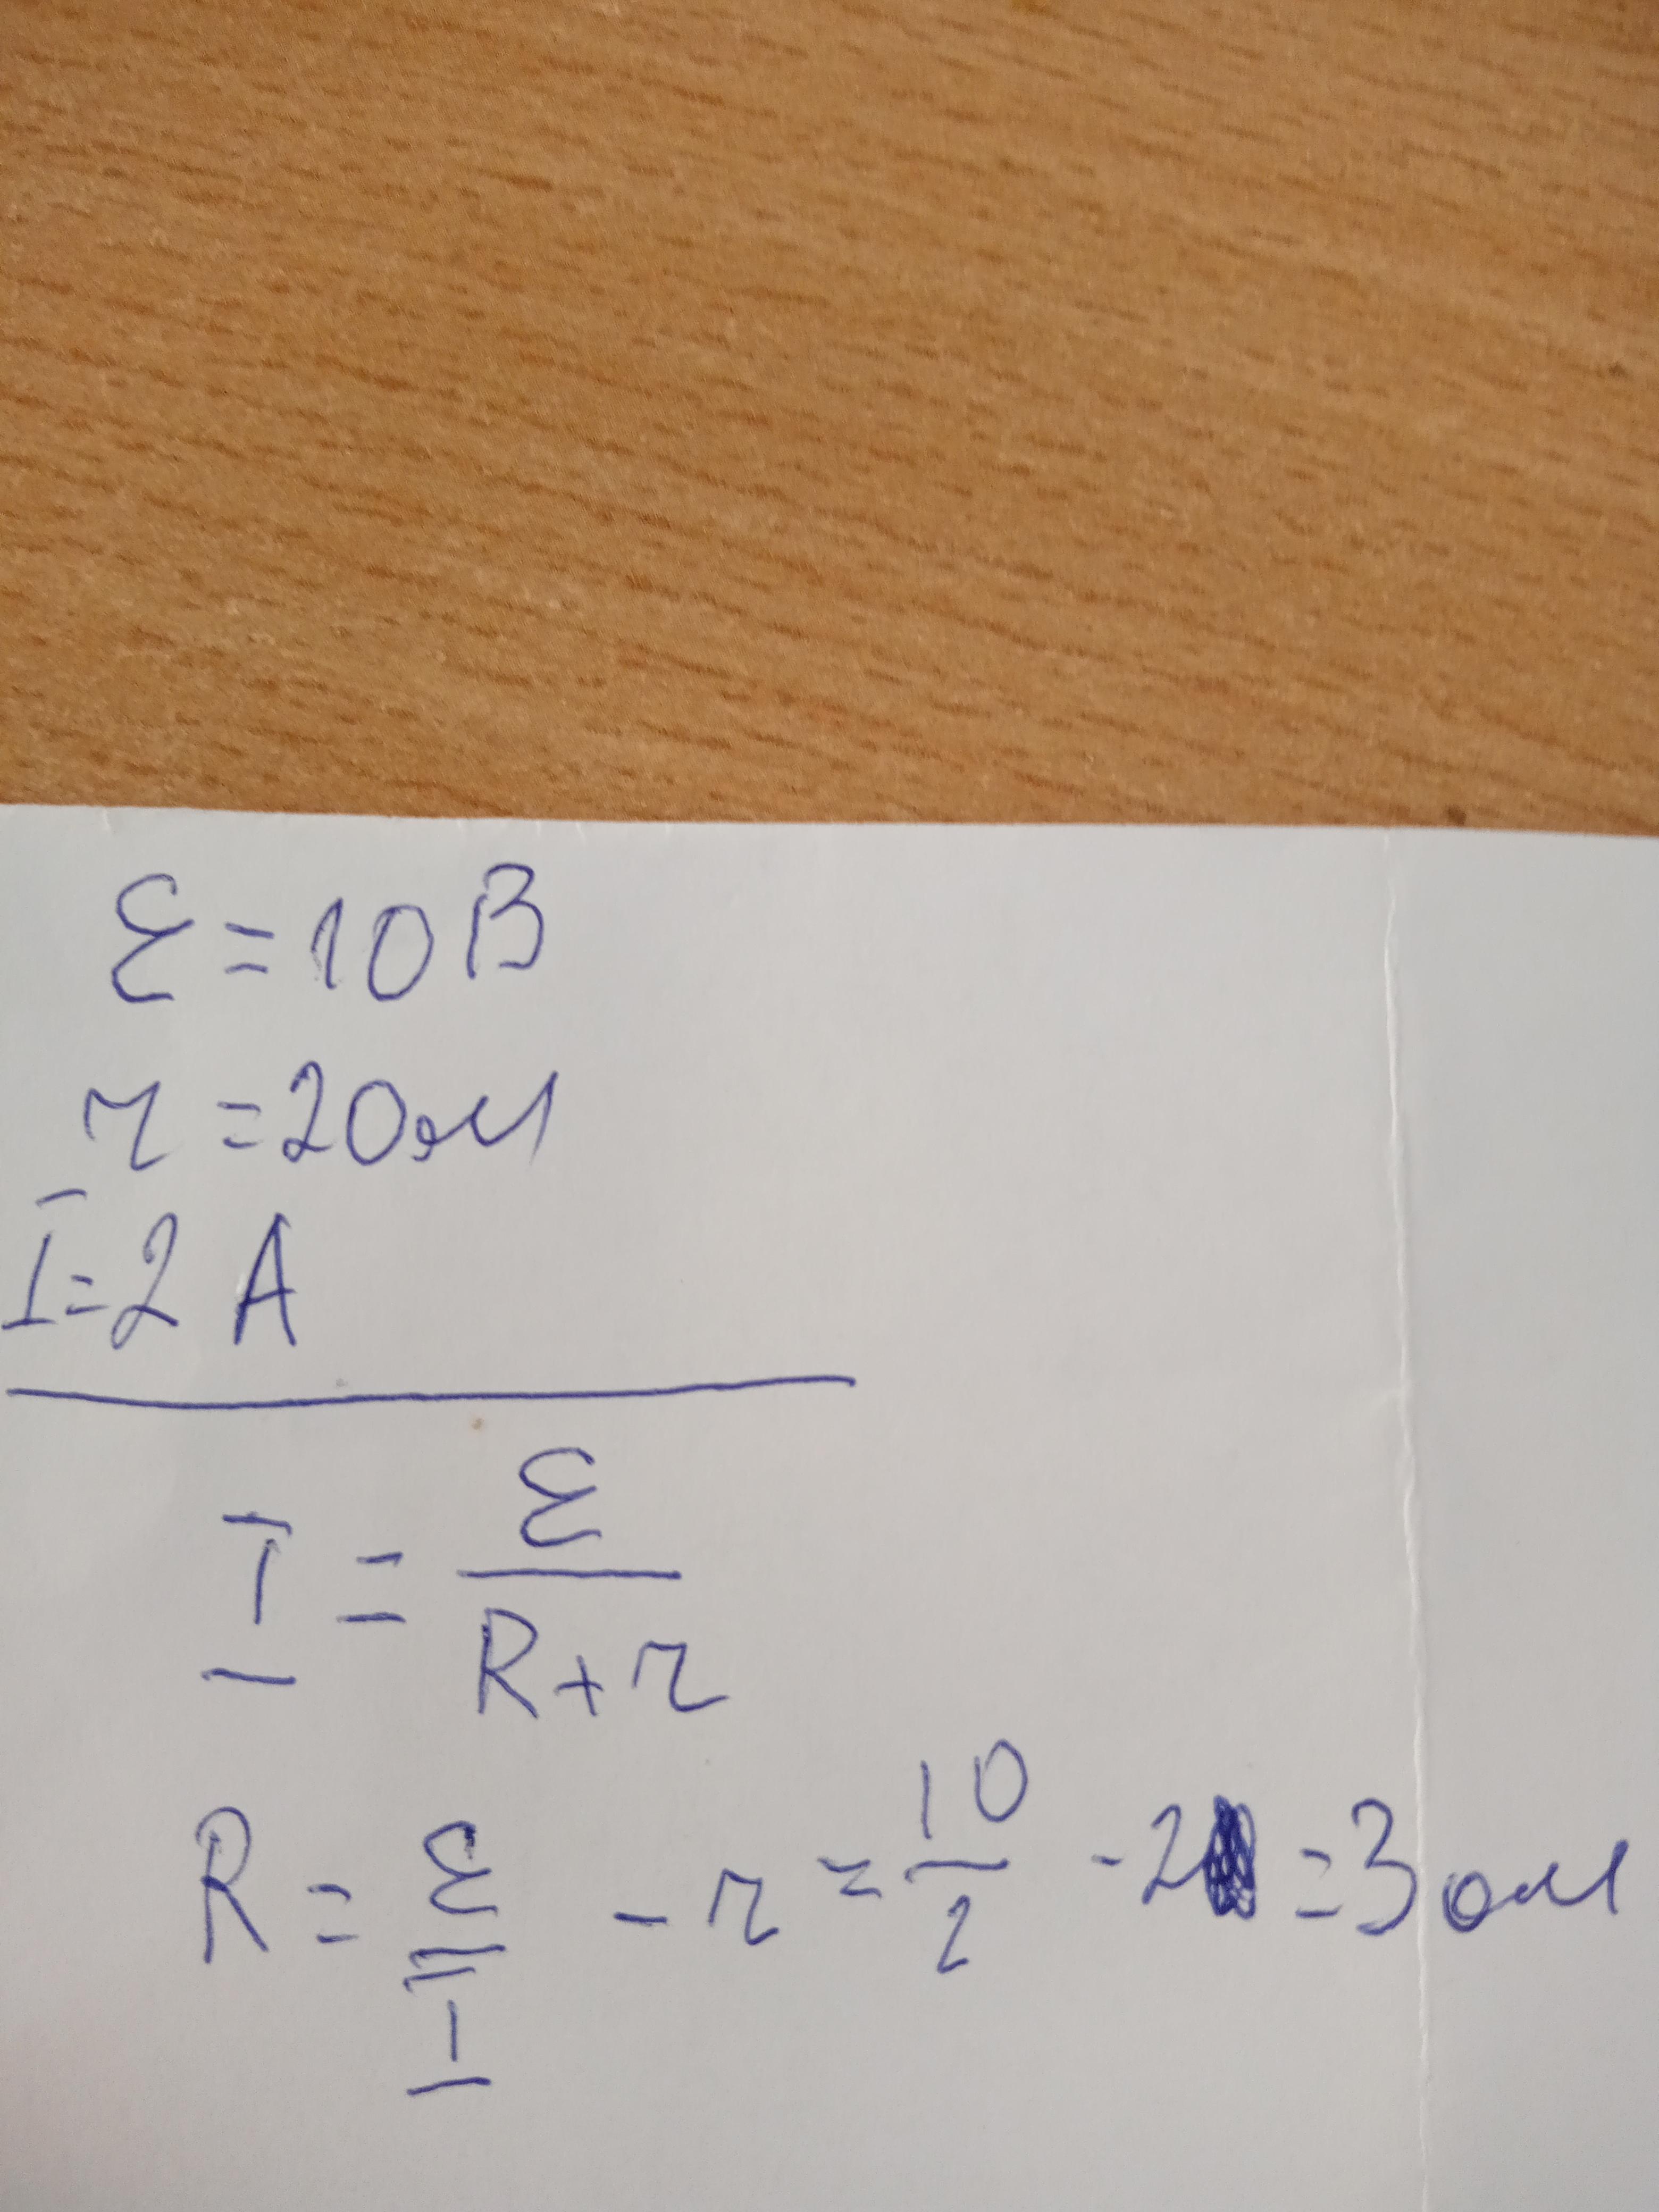 ε = 10 В
r = 20ом
I = 2 А
I = ε / R + r
R = ε / I - r = 10 / 2 - 2 = 3 ом